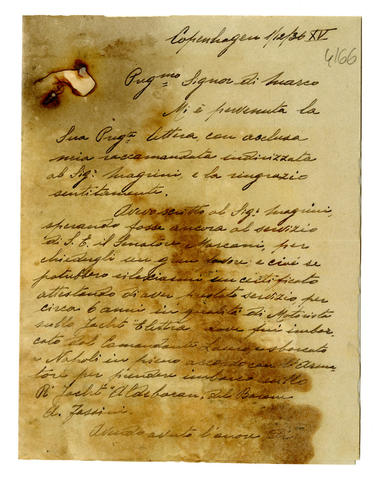 Copenhagen 1/12/36 XV
4166
Preg.mo Signor di Marco
Mi è pervenuta la
Sua Preg.ta lettera con acclusa
mia raccomandata indirizzata
al Sig. Magrini, e la ringrazio
sentitamente.
Avevo scritto al Sig. Magrini,
sperando fosse ancora al servizio
di S. E. il Senatore Marconi, per
chiedergli un gran favore, e cioè se
potrebbe rilasciarmi un certificato
attestando di aver prestato servizio per
circa 6 anni in qualità di Motorista
sullo Yacht Elettra, ove fui imbar-
cato dal Comandante e sbarcato
a Napoli in pieno accordo con l'Arma-
tore per prendere imbarco sullo
Yacht "Aldebaran", del Barone
A. Fassini.
Avendo avuto l'onore di